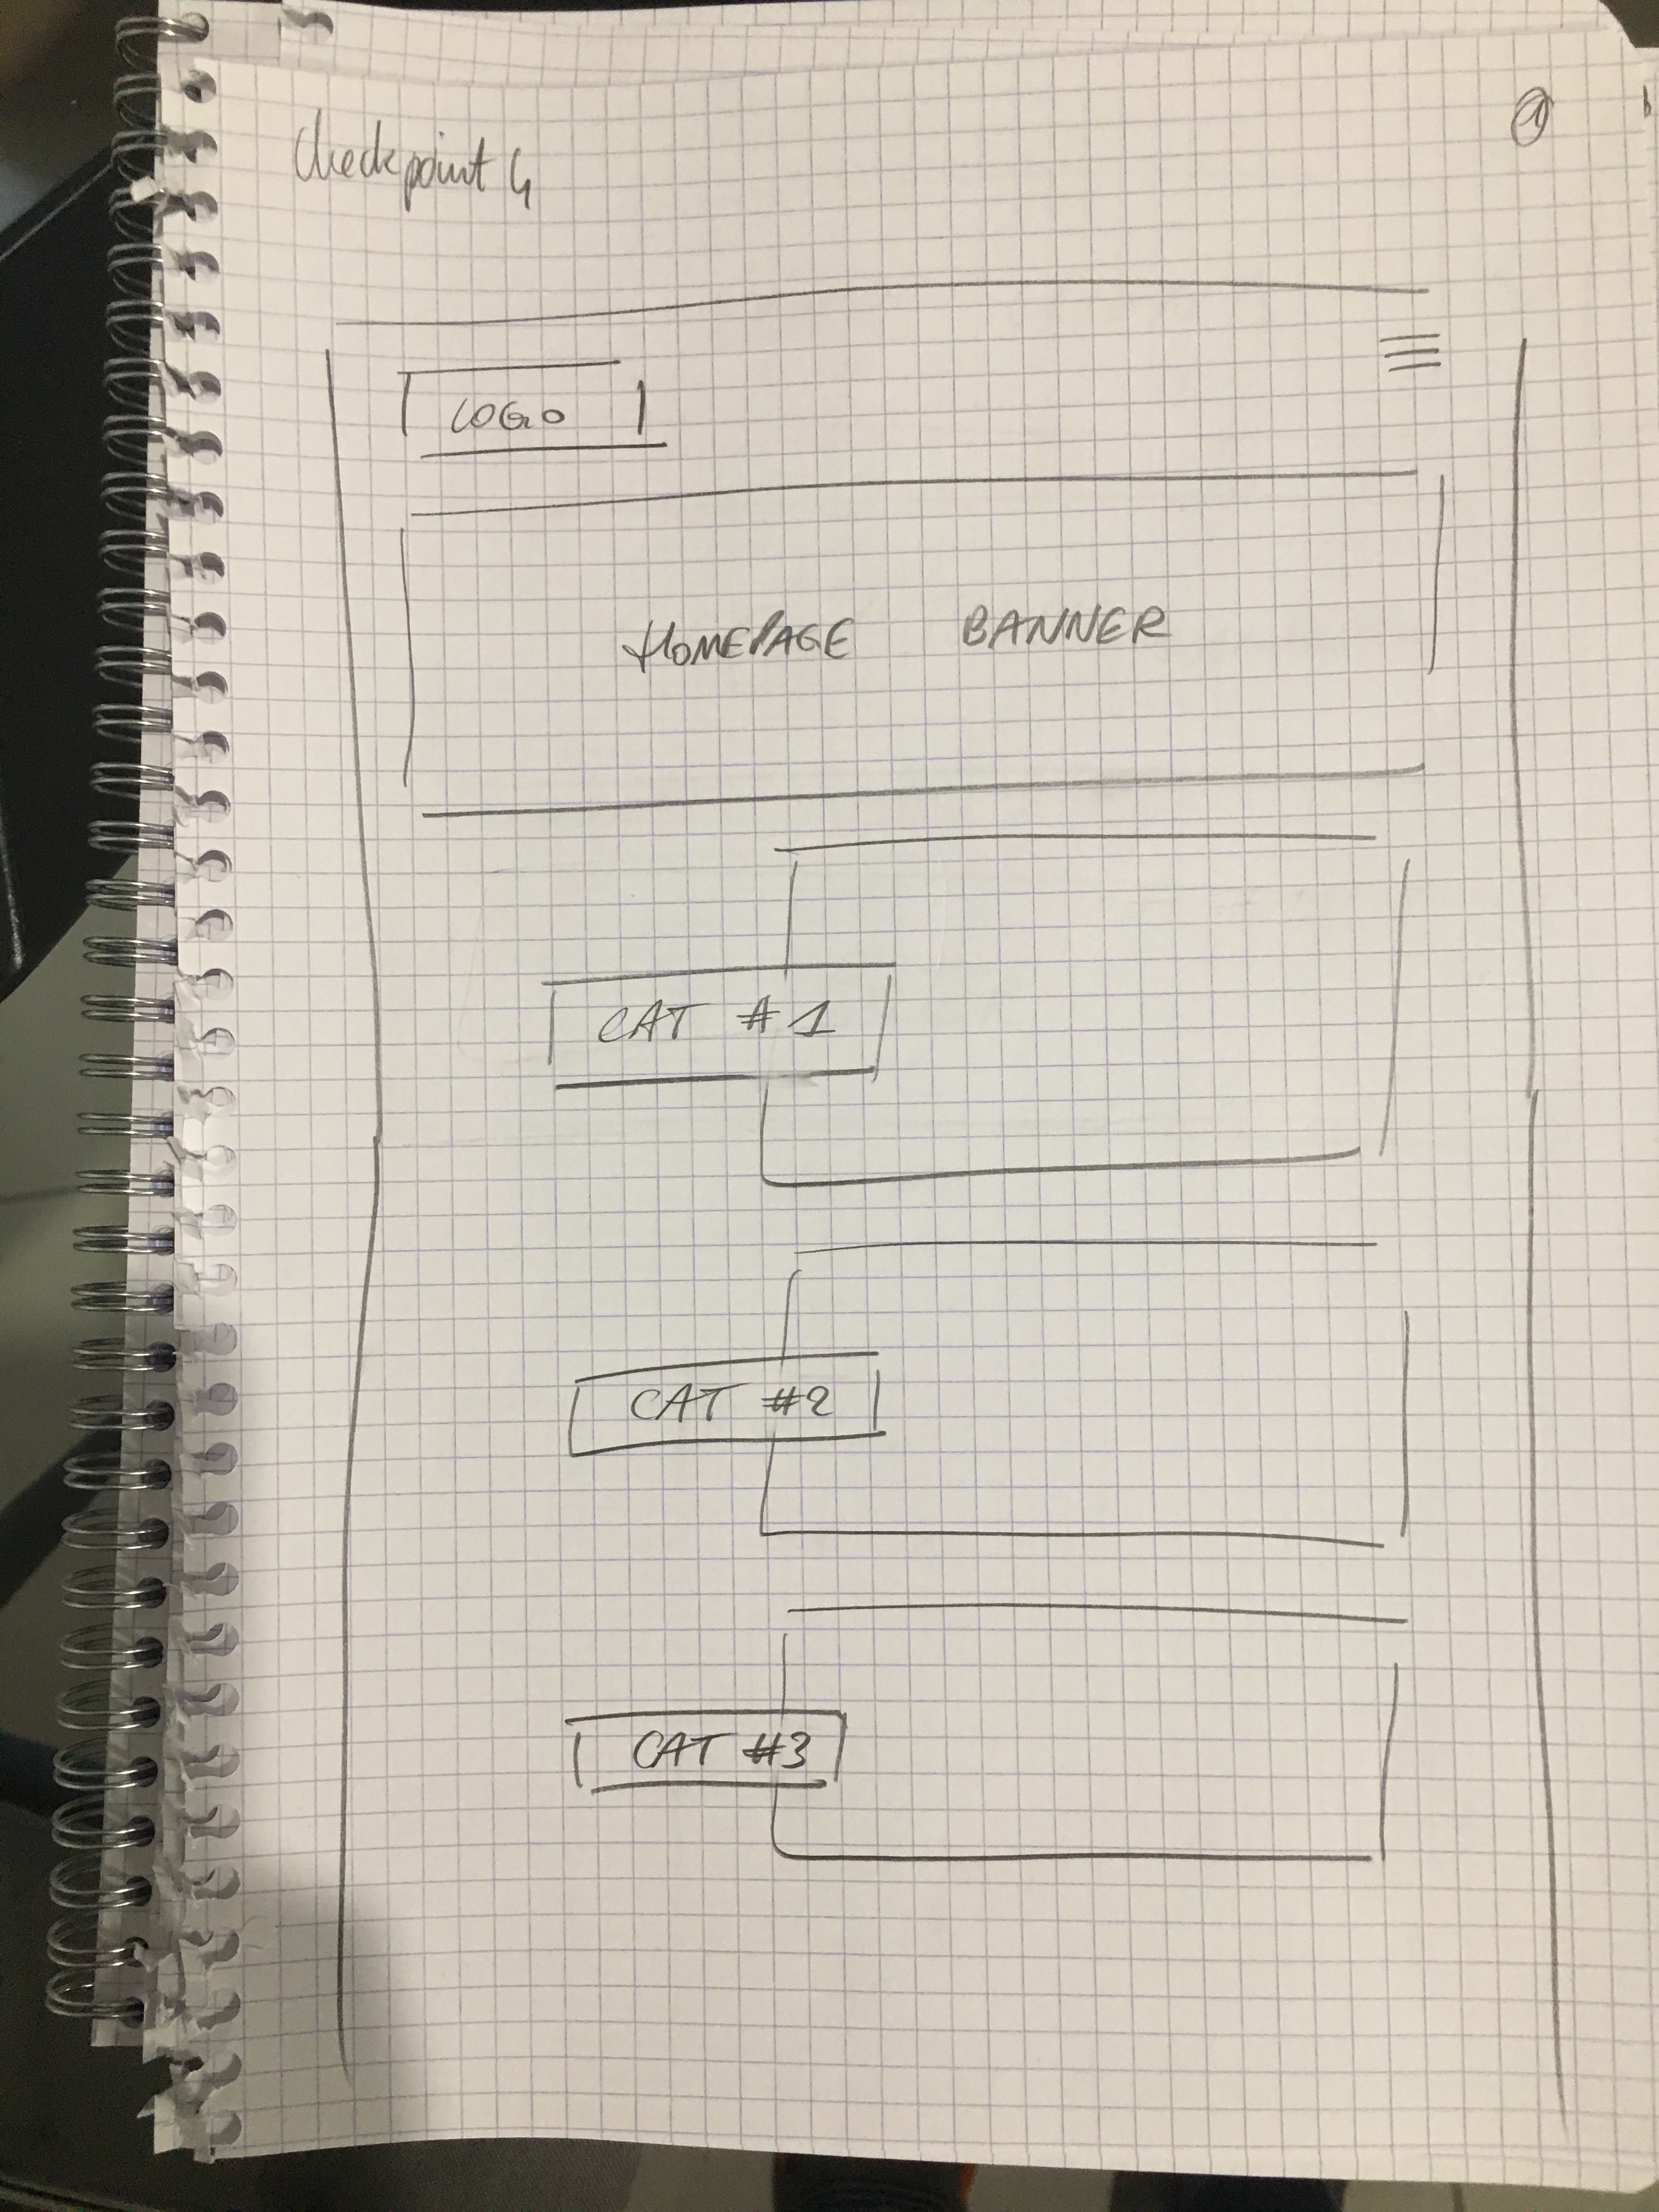 Checkpoint 4
1
LOGO
HOMEPAGE BANNER
CAT #1
CAT #2
CAT #3